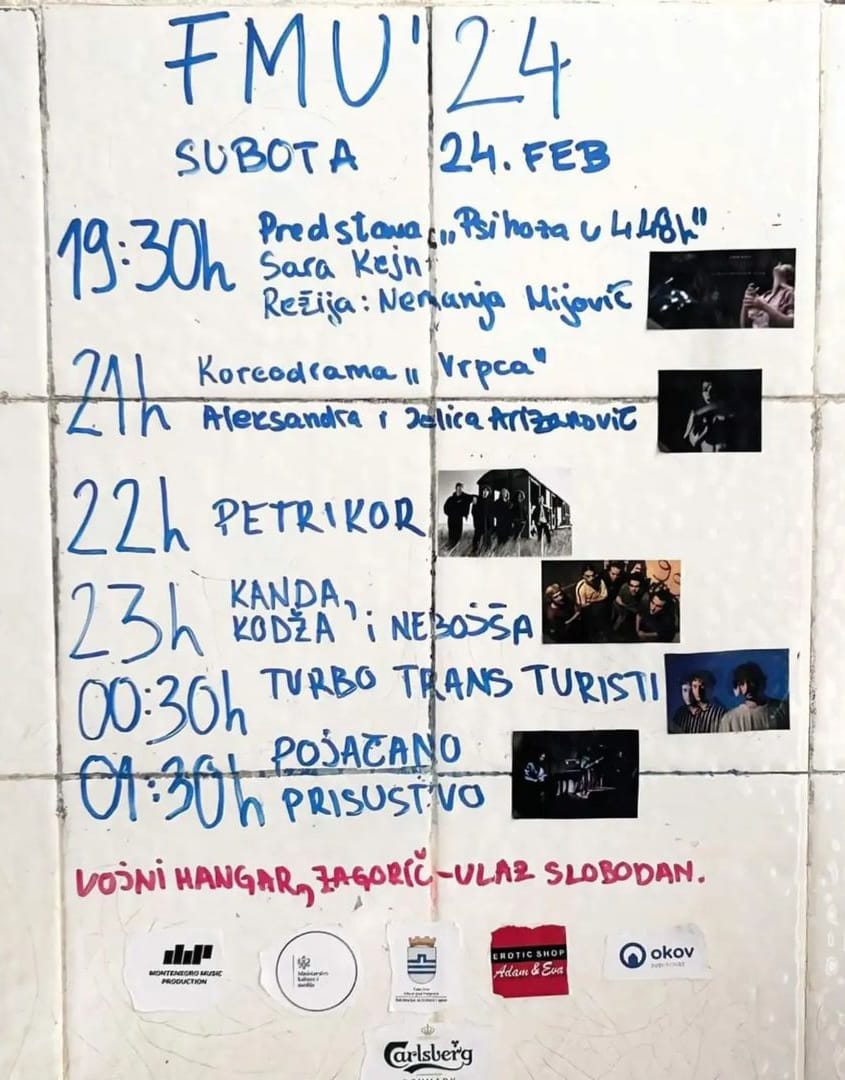 FMU'24
SUBOTA 24. FEB
19:30h Predstava „Psihoza u 4:48h"
Sara Kejn
Režija: Nemanja Mijović
21h Koreodrama „Vrpca"
Aleksandra i Jelica Arizanović
22h PETRIKOR
23h KANDA,
KODŽA i NEBOJŠA
00:30h TURBO TRANS TURISTI
01:30h POJAČANO
PRISUSTVO
VOJNI HANGAR, ZAGORIČ-ULAZ SLOBODAN.
MONTENEGRO MUSIC
PRODUCTION
Ministarstvo
kulture i
medija
EROTIC SHOP
Adam & Eva
okov
Carlsberg